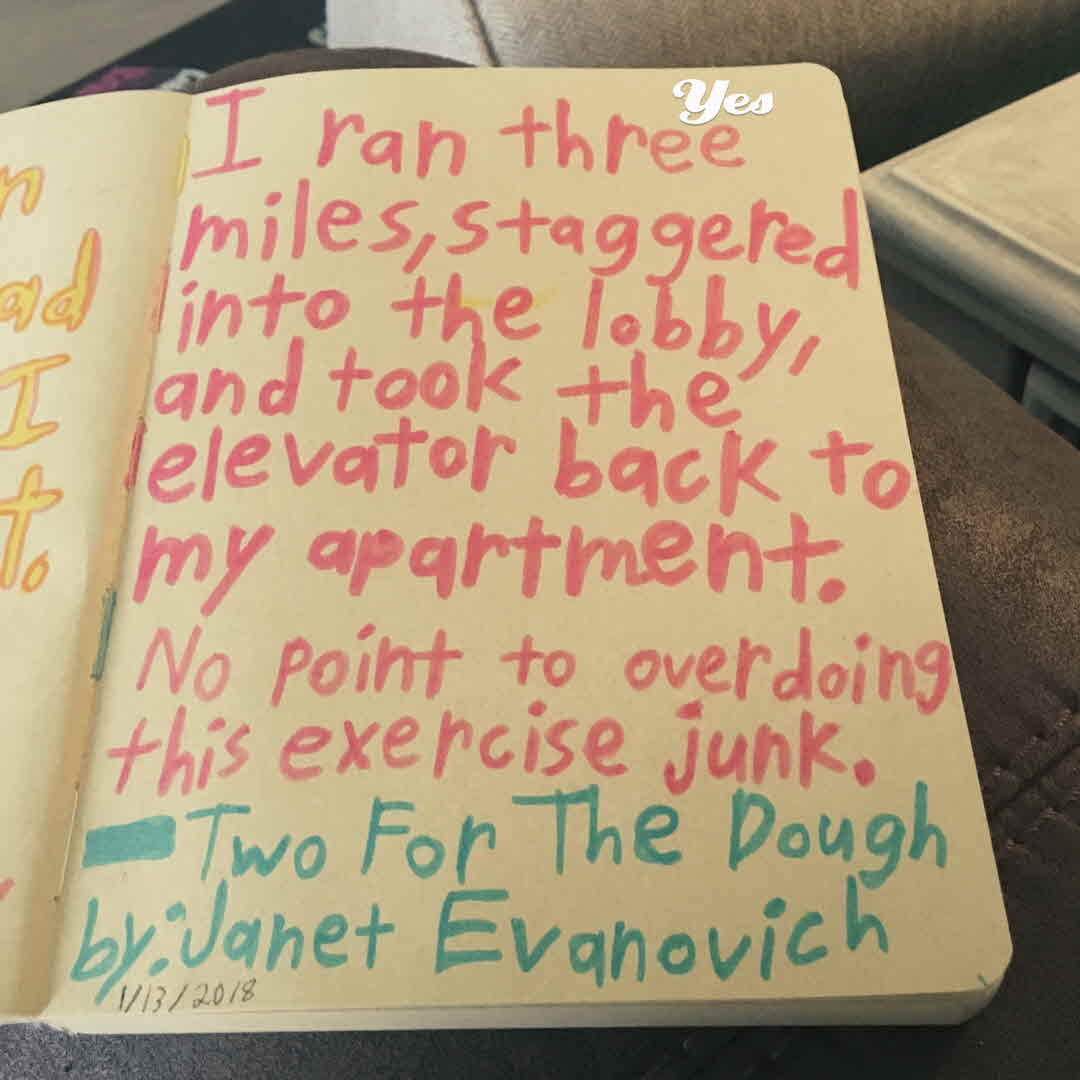 Yes
I ran three
miles, staggered
into the lobby,
and took the
elevator back to
my apartment.
No point to overdoing
this exercise junk.
— Two For The Dough
by: Janet Evanovich
1/13/2018
n
ad
I
t.